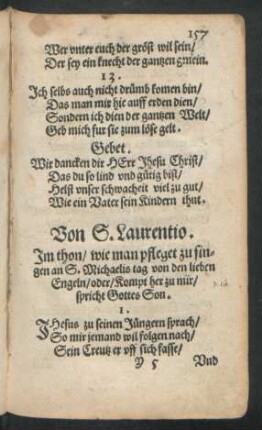 157
Wer vnter euch der gröst wil sein/
Der sey ein knecht der gantzen gmein.
12.
Ich selbs auch nicht drümb komen bin/
Das man mir hie auff erden dien/
Sondern ich dien der gantzen Welt/
Geb mich fur sie zum löse gelt.
Gebet.
Wir dancken dir HErr Jhesu Christ/
Das du so lind vnd gütig bist/
Helst vnser schwacheit viel zu gut/
Wie ein Vater sein Kindern thut.
Von S. Laurentio.
Im thon/ wie man pfleget zu sin-
gen an S. Michaelis tag von den lieben
Engeln/ oder/ Kompt her zu mir/
spricht Gottes Son.
1.
JHesus zu seinen Jüngern sprach/
So mir jemand wil folgen nach/
Sein Creutz er vff sich fasse/
Y 5 Vnd